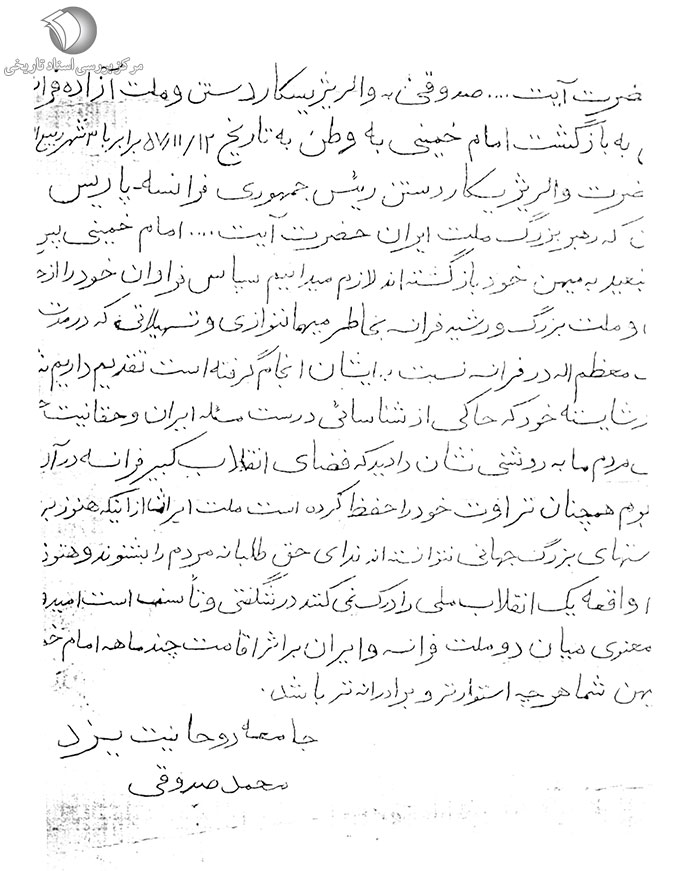 مرکز بررسی اسناد تاریخی
حضرت آیت .... صدوقی به والریژیسکاردستن و ملت آزاده فران
به بازگشت امام خمینی به وطن به تاریخ ۵۷/۱۱/۱۲ برابر با ۳ شهر ربیع
حضرت والریژیسکاردستن رئیس جمهوری فرانسه - پاریس
که رهبر بزرگ ملت ایران حضرت آیت .... امام خمینی
تبعید به میهن خود بازگشته اند لازم میدانیم سپاس فراوان خود را از
و ملت بزرگ و رشید فرانسه بخاطر میهمانوازی و تسهیلاتی که در مدت
معظم اله در فرانسه نسبت به ایشان انجام گرفته است تقدیم داریم
شایسته خود که حاکی از شناسائی درست مسئله ایران و حقانیت
مردم ما به روشنی نشان دادید که فضای انقلاب کبیر فرانسه در آن
همچنان تراوت خود را حفظ کرده است ملت ایران از اینکه هنوز
ستهای بزرگ جهانی نتوانسته اند ندای حق طلبانه مردم را بشنوند و هنوز
واقعه یک انقلاب ملی را درک نمی کنند در شگفتی و تأسف است امید
معنوی میان دو ملت فرانسه و ایران بر اثر اقامت چند ماهه امام
میهن شما هر چه استوارتر و برادرانه تر باشد.
جامعه روحانیت یزد
محمد صدوقی